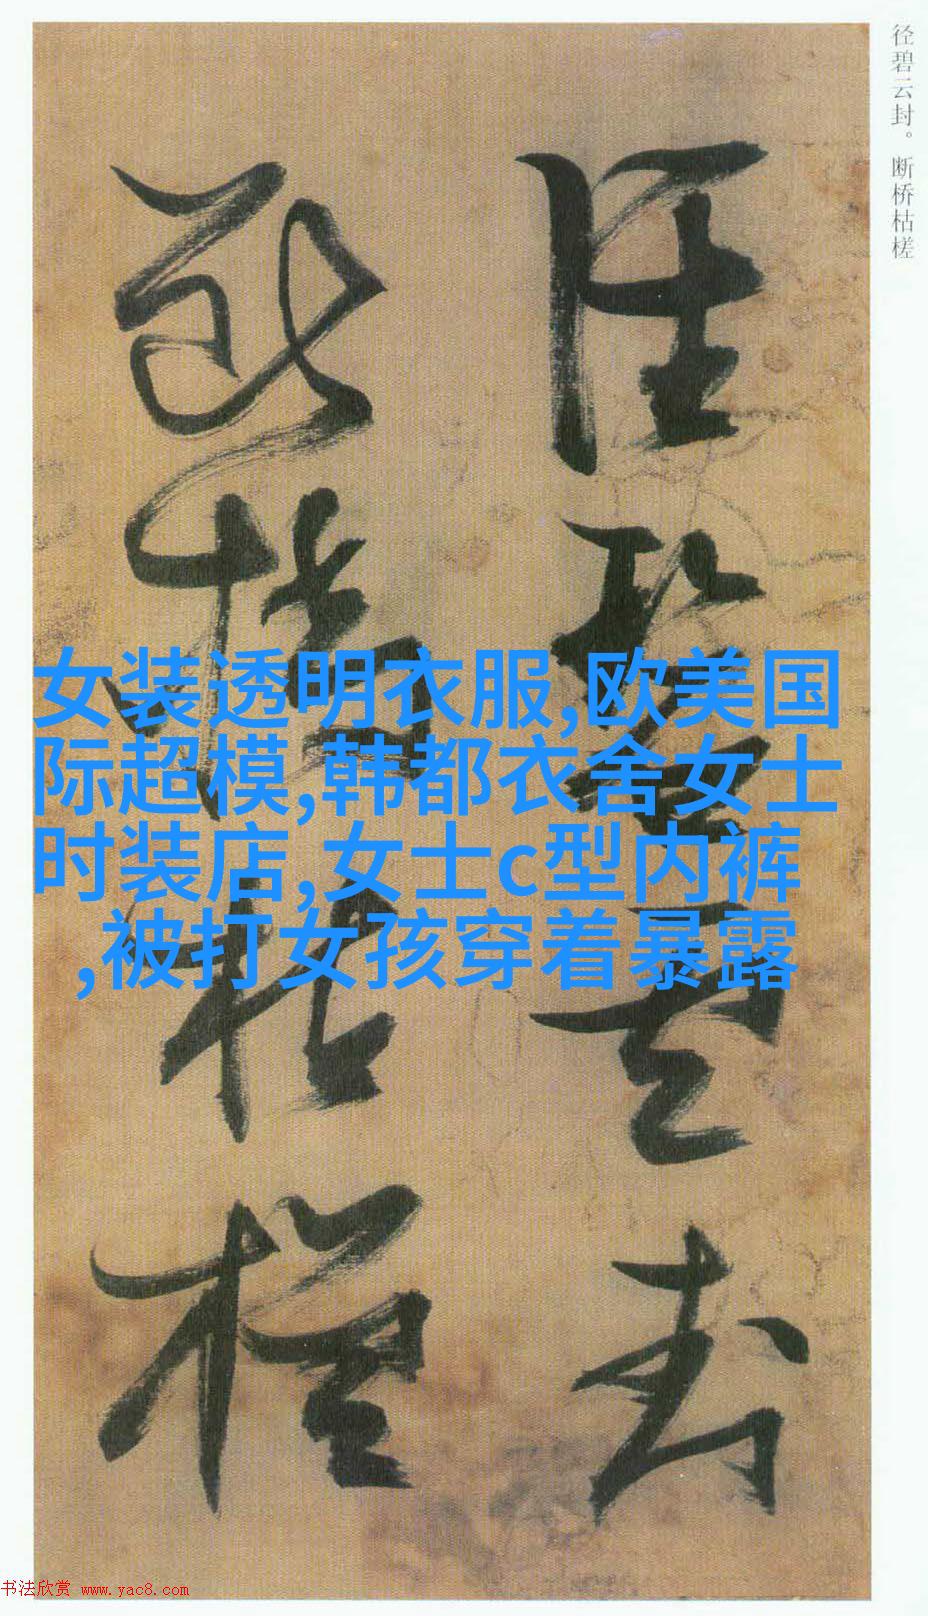 径碧云封。断桥枯槎
径碧云封
断桥枯槎
女装透明衣服,欧美国
际超模,韩都衣舍女士
时装店,女士c型内裤
,被打女孩穿着暴露
书法欣赏 www.yac8.com